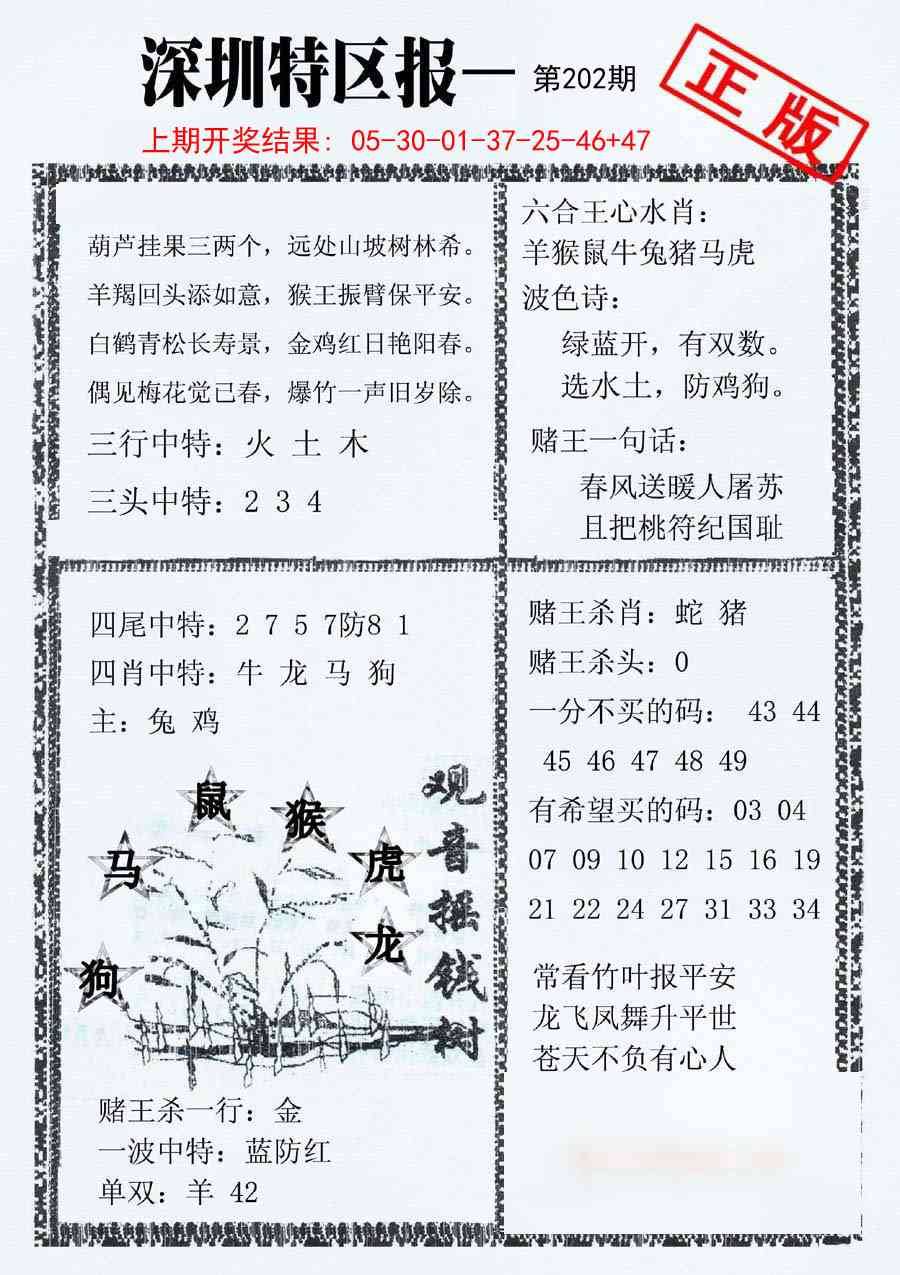 深圳特区报一 第202期
正版
上期开奖结果：05-30-01-37-25-46+47
葫芦挂果三两个，远处山坡树林希。
羊羯回头添如意，猴王振臂保平安。
白鹤青松长寿景，金鸡红日艳阳春。
偶见梅花觉已春，爆竹一声旧岁除。
三行中特：火 土 木
三头中特：2 3 4
六合王心水肖：
羊猴鼠牛兔猪马虎
波色诗：
绿蓝开，有双数。
选水土，防鸡狗。
赌王一句话：
春风送暖人屠苏
且把桃符纪国耻
四尾中特：2 7 5 7防8 1
四肖中特：牛 龙 马 狗
主：兔 鸡
鼠
猴
马
虎
龙
狗
观音摇钱树
赌王杀一行：金
一波中特：蓝防红
单双：羊 42
赌王杀肖：蛇 猪
赌王杀头：0
一分不买的码： 43 44
45 46 47 48 49
有希望买的码：03 04
07 09 10 12 15 16 19
21 22 24 27 31 33 34
常看竹叶报平安
龙飞凤舞升平世
苍天不负有心人